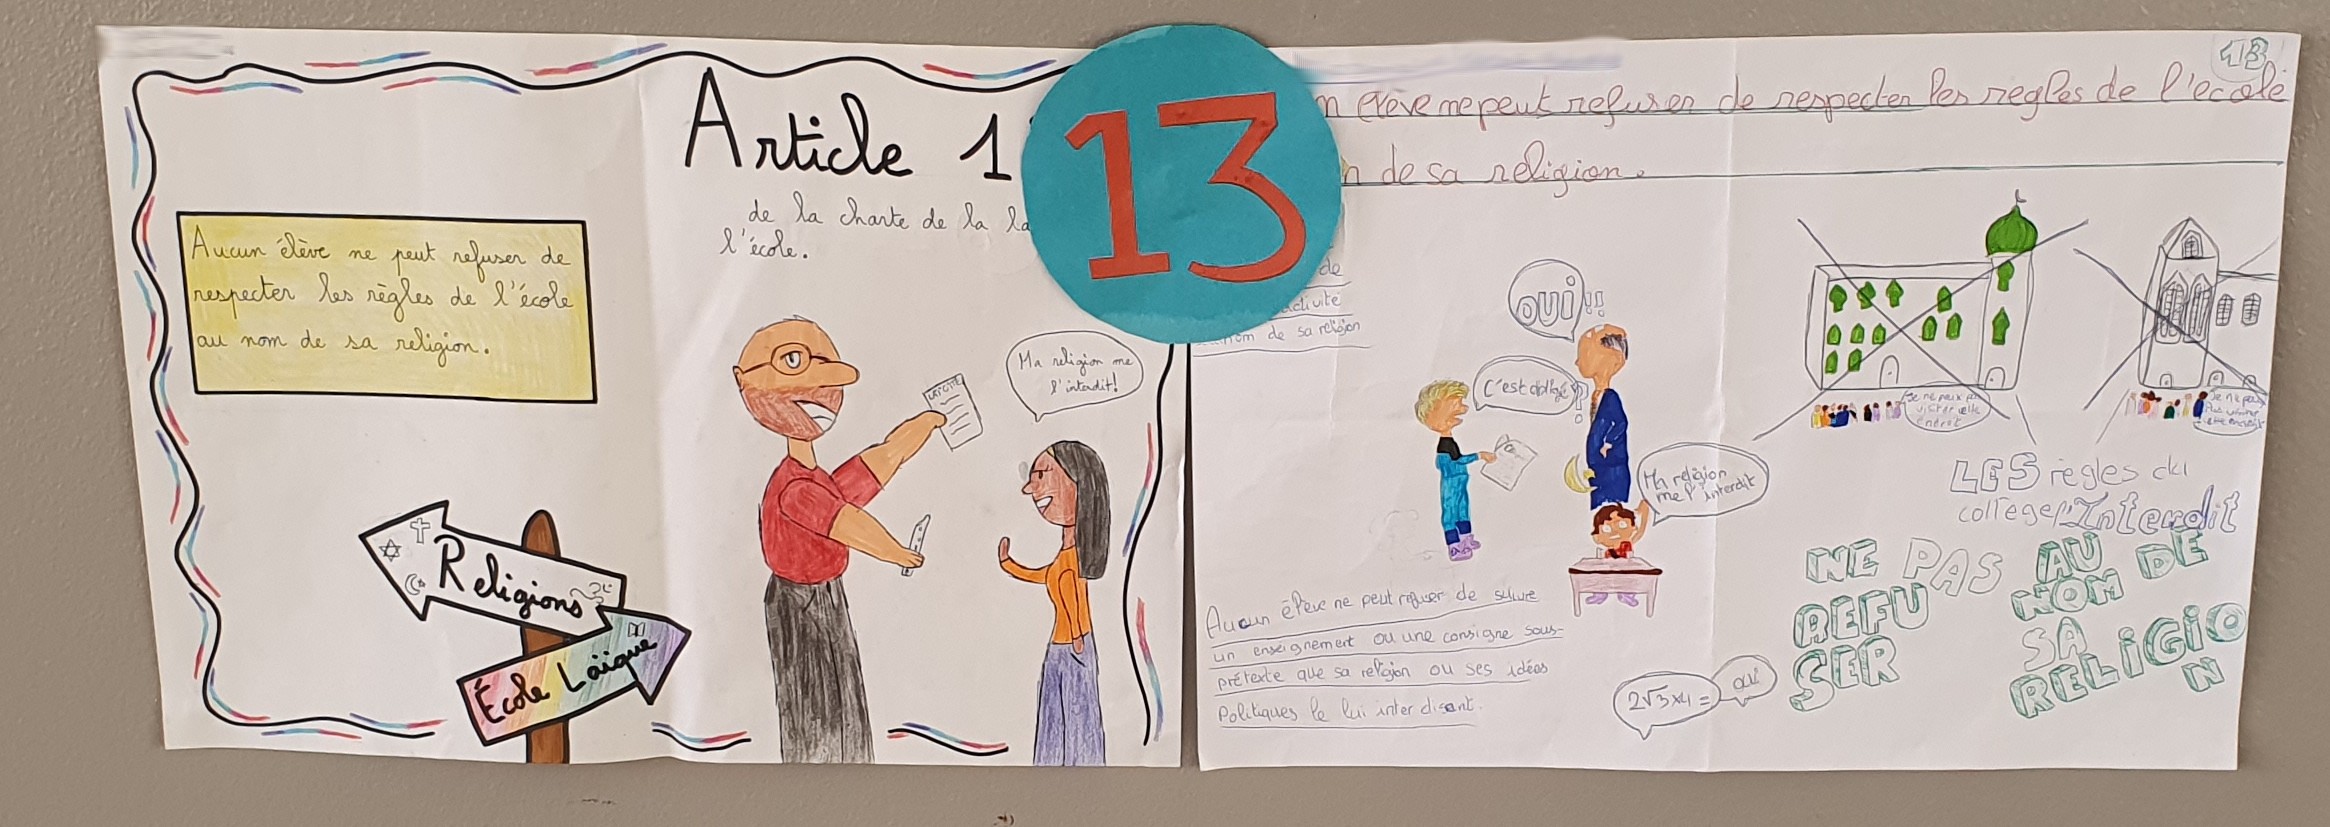 Aucun élève ne peut refuser de
respecter les règles de l'école
au nom de sa religion.
Religions
École Laïque
Article 1
de la charte de la la
l'école.
LAÏCITÉ
Ma religion me
l'interdit!
13
13
n élève ne peut refuser de respecter les règles de l'école
n de sa religion.
de
ctivité
nom de sa religion
OUI!!
C'est obligé?
Ma religion
me l'interdit
Aucun élève ne peut refuser de suivre
un enseignement ou une consigne sous-
prétexte que sa religion ou ses idées
Politiques le lui interdisent.
2√3×4=
oui
Je ne peux pas
visiter
endroit
Je ne peux
pas visiter
endroit
LES règles du
collège
Interdit
NE PAS
REFU
SER
AU
NOM DE
SA
RELIGIO
N